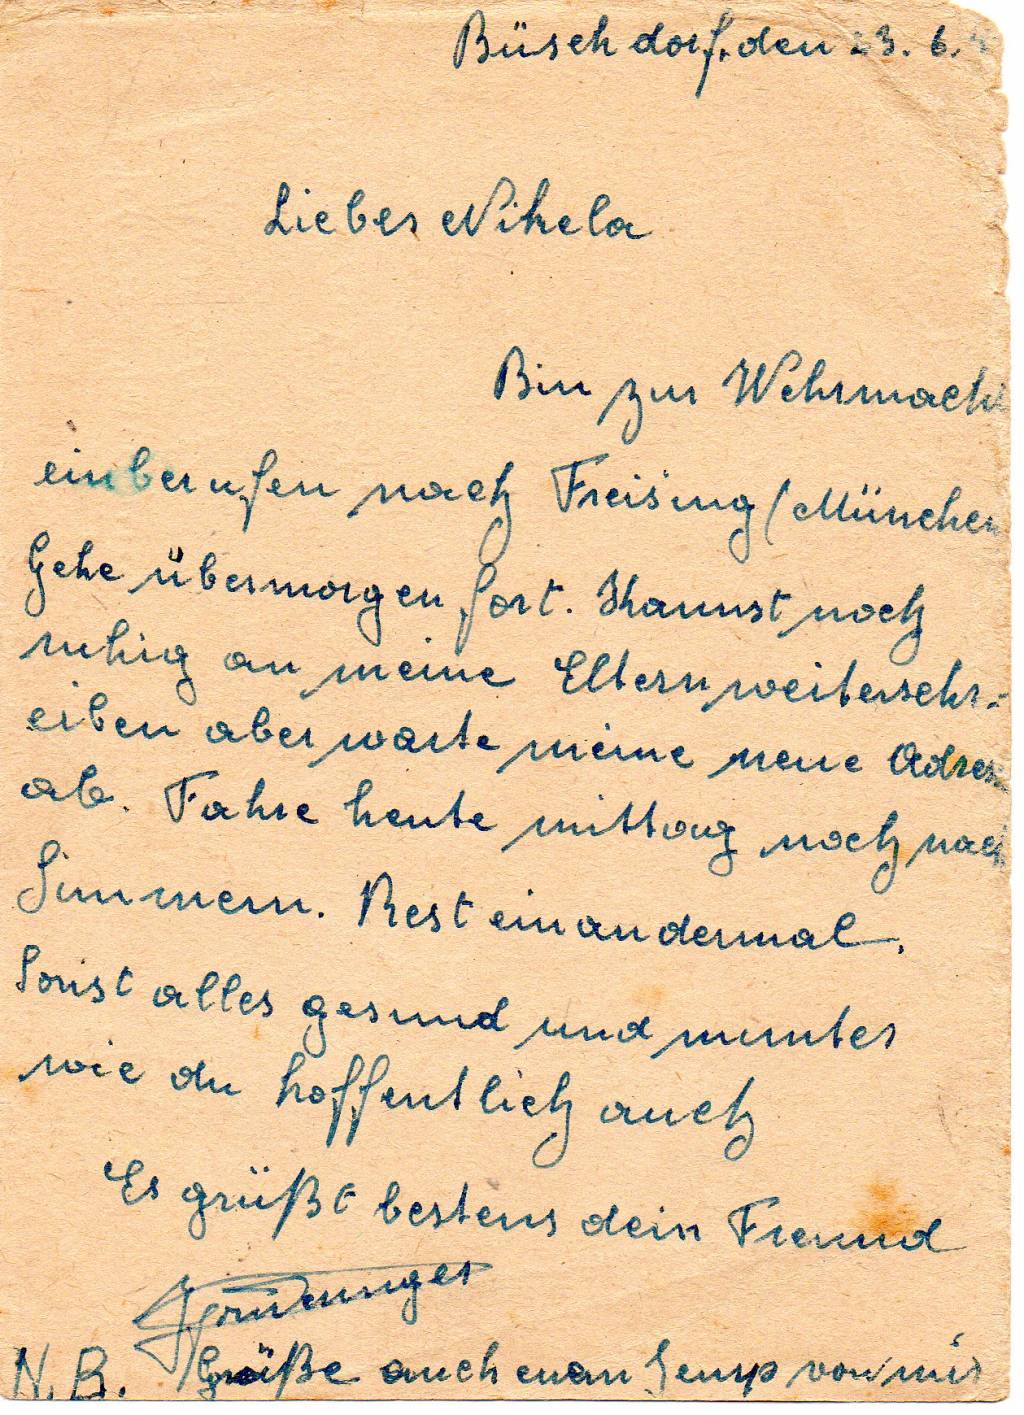 Büschdorf, den 23. 6.
Liebes Nikela
Bin zur Wehrmach
einberufen nach Freising (München
Gehe übermorgen fort. Kannst noch
ruhig an meine Eltern weiterschr-
eiben aber warte meine neue Adres
ab. Fahre heute mittag noch nach
Simmern. Rest einandermal.
Sonst alles gesund und munter
wie du hoffentlich auch
Es grüßt bestens dein Freund
N.B. Grüße auch von mir